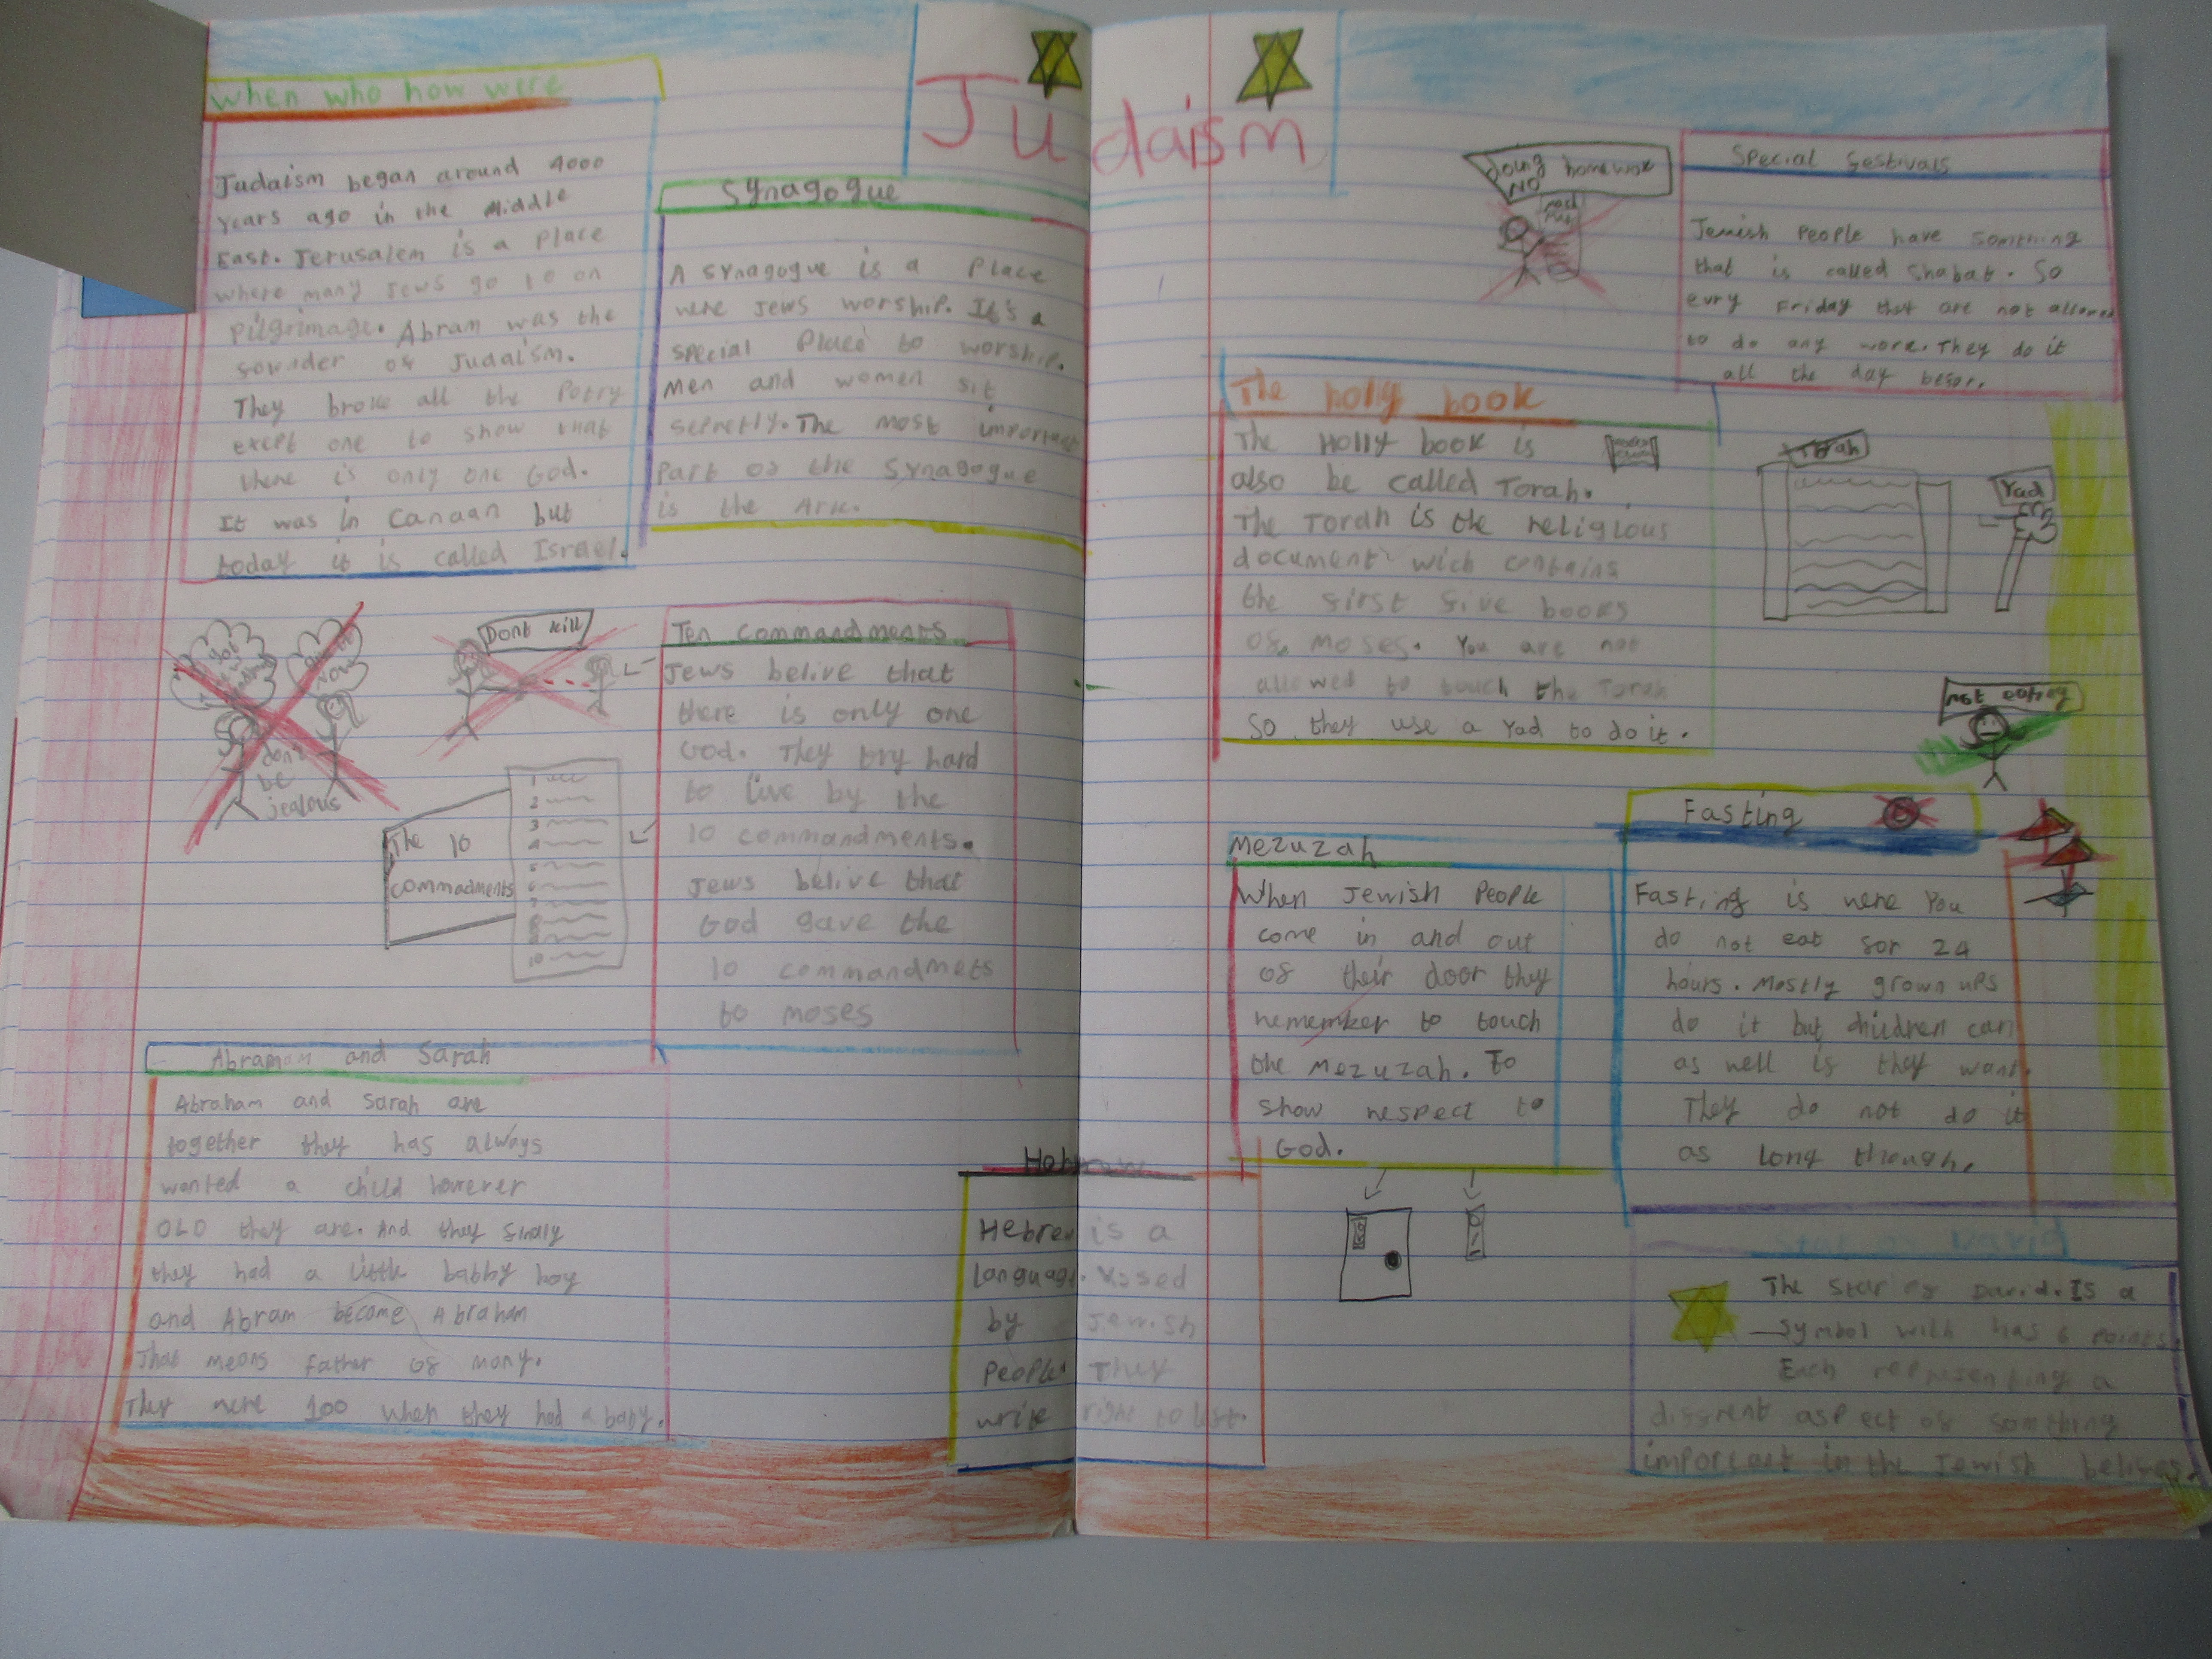 Judaism
when who how were
Judaism began around 4000
years ago in the Middle
East. Jerusalem is a place
where many Jews go to on
pilgrimage. Abram was the
sounder of Judaism.
They broke all the Potry
except one to show that
there is only one God.
It was in Canaan but
today it is called Israel.
Synagogue
A synagogue is a place
were Jews worship. It's a
special place to worship.
Men and women sit
The most important
part of the Synagogue
is the Ark.
Dont kill
don't
be
jealous
The 10
commadments
1
2
3
4
5
6
7
8
9
10
Ten commandments
Jews belive that
there is only one
God. They try hard
to live by the
10 commandments.
Jews belive that
God gave the
10 commandmets
to moses
Abraham and Sarah
Abraham and Sarah are
together they has always
wanted a child however
OLD they are. And they finaly
they had a little babby boy
and Abram become Abraham
That means father of many.
They were 100 when they had a baby.
Hebrew
Hebrew is a
language used
by Jewish
people. They
write right to left.
doing homework
NO
Special festivals
Jewish People have somthing
that is called Shabat. So
evry Friday that are not allowed
to do any work. They do it
all the day befor.
The holy book
The Holly book is
also be called Torah.
The Torah is the religious
document wich contains
the first five books
of moses. You are not
allowed to touch the Torah
so they use a Yad to do it.
Torah
Yad
not eating
Mezuzah
When Jewish People
come in and out
of their door they
remember to touch
the Mezuzah. To
show respect to
God.
Fasting
Fasting is were you
do not eat for 24
hours. Mostly grown ups
do it but children can
as well if they want.
They do not do it
as long though.
The Star of David. Is a
Symbol with has 6 points.
Each representing a
diffrent aspect of somthing
important in the Jewish belives.